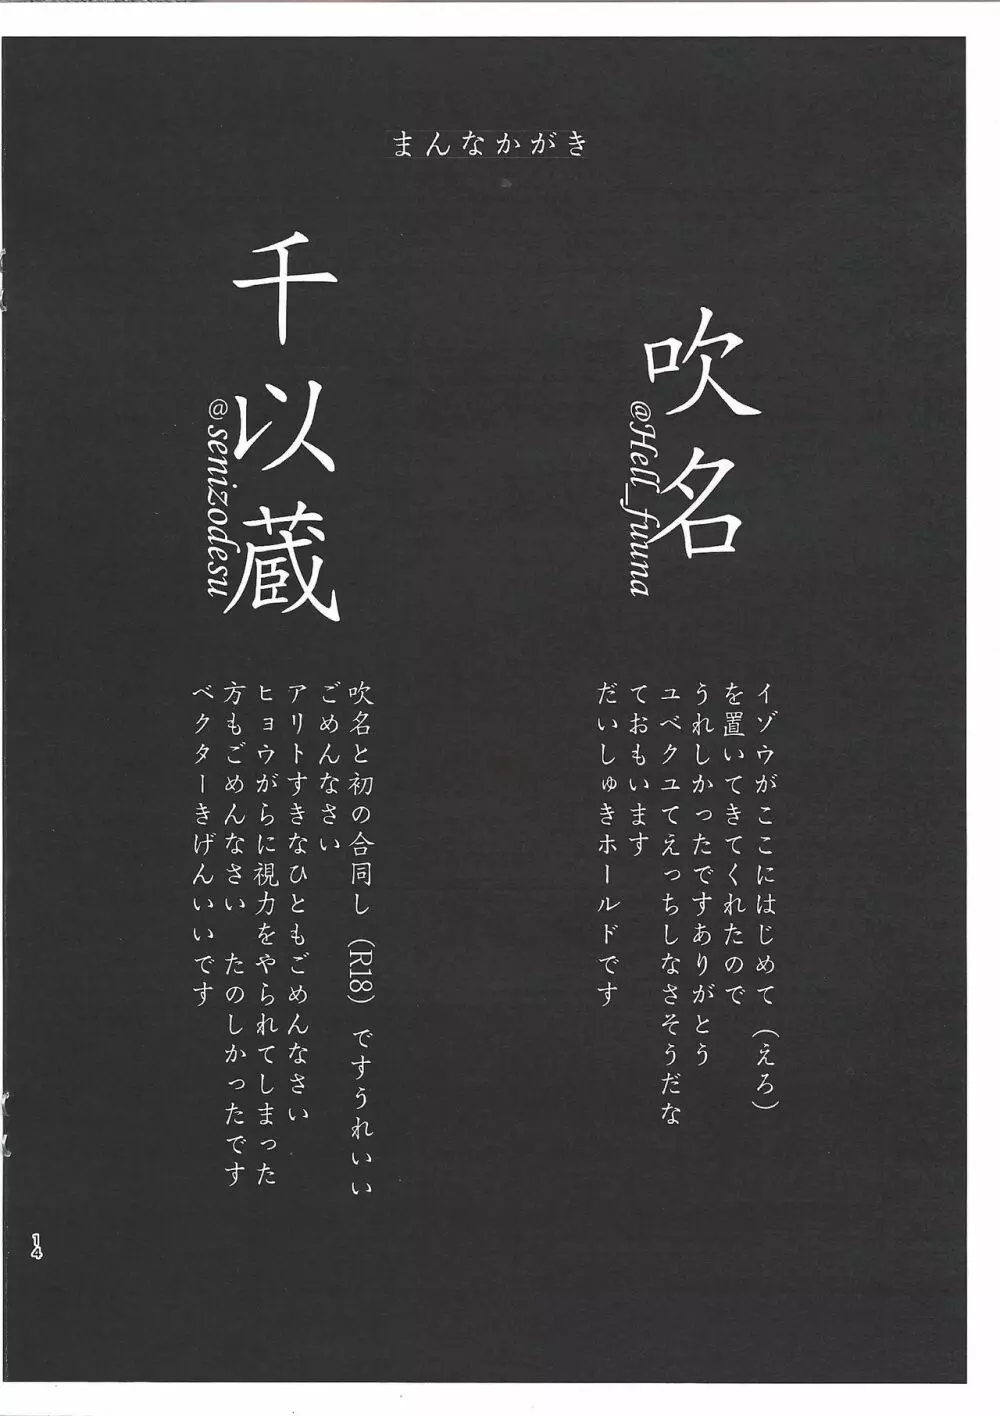 まんなかがき
吹名
@Hell_fuuna
イゾウがここにはじめて（えろ）
を置いてきてくれたので
うれしかったですありがとう
ユベクユてえっちしなさそうだな
ておもいます
だいしゅきホールドです
千以蔵
@senizodesu
吹名と初の合同し（R18）ですうれいいい
ごめんなさい
アリトすきなひともごめんなさい
ヒョウがらに視力をやられてしまった
方もごめんなさい　たのしかったです
ベクターきげんいいです
14